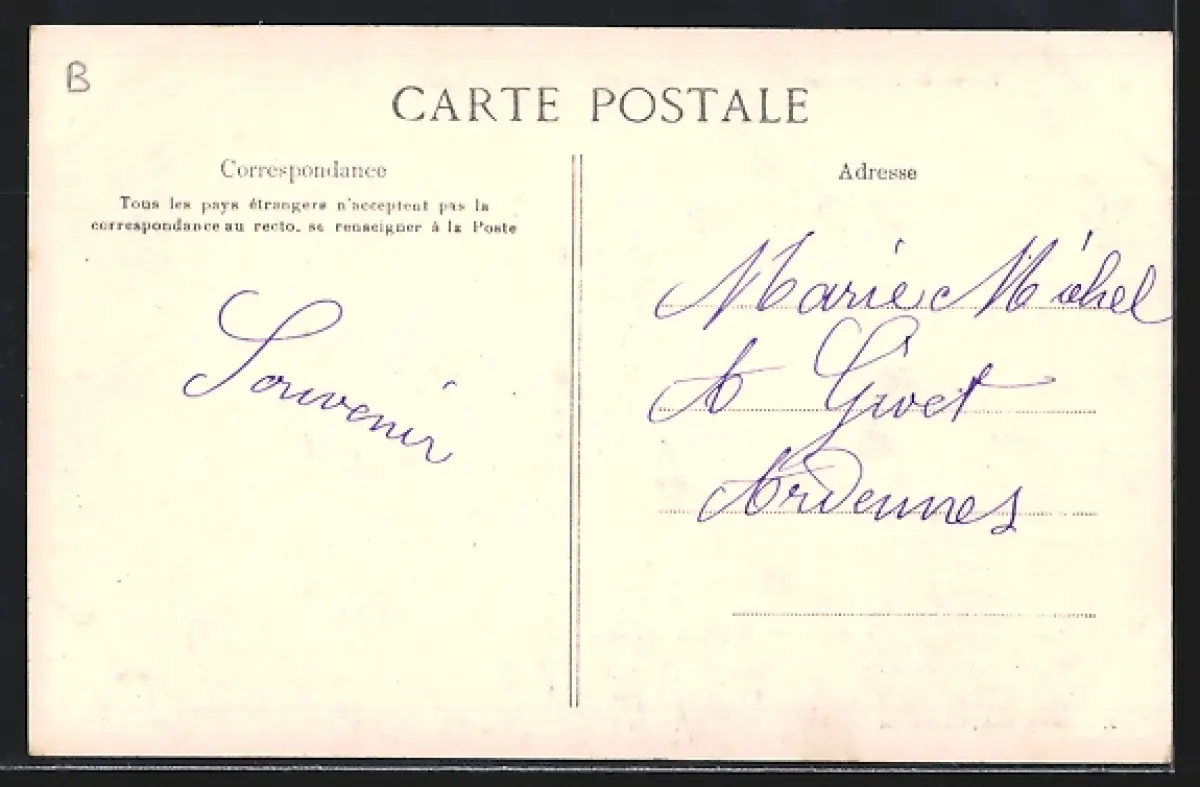 B
CARTE POSTALE
Correspondance
Tous les pays étrangers n'acceptent pas la
correspondance au recto. se renseigner à la Poste
Souvenir
Adresse
Marie Michel
A Givet
Ardennes